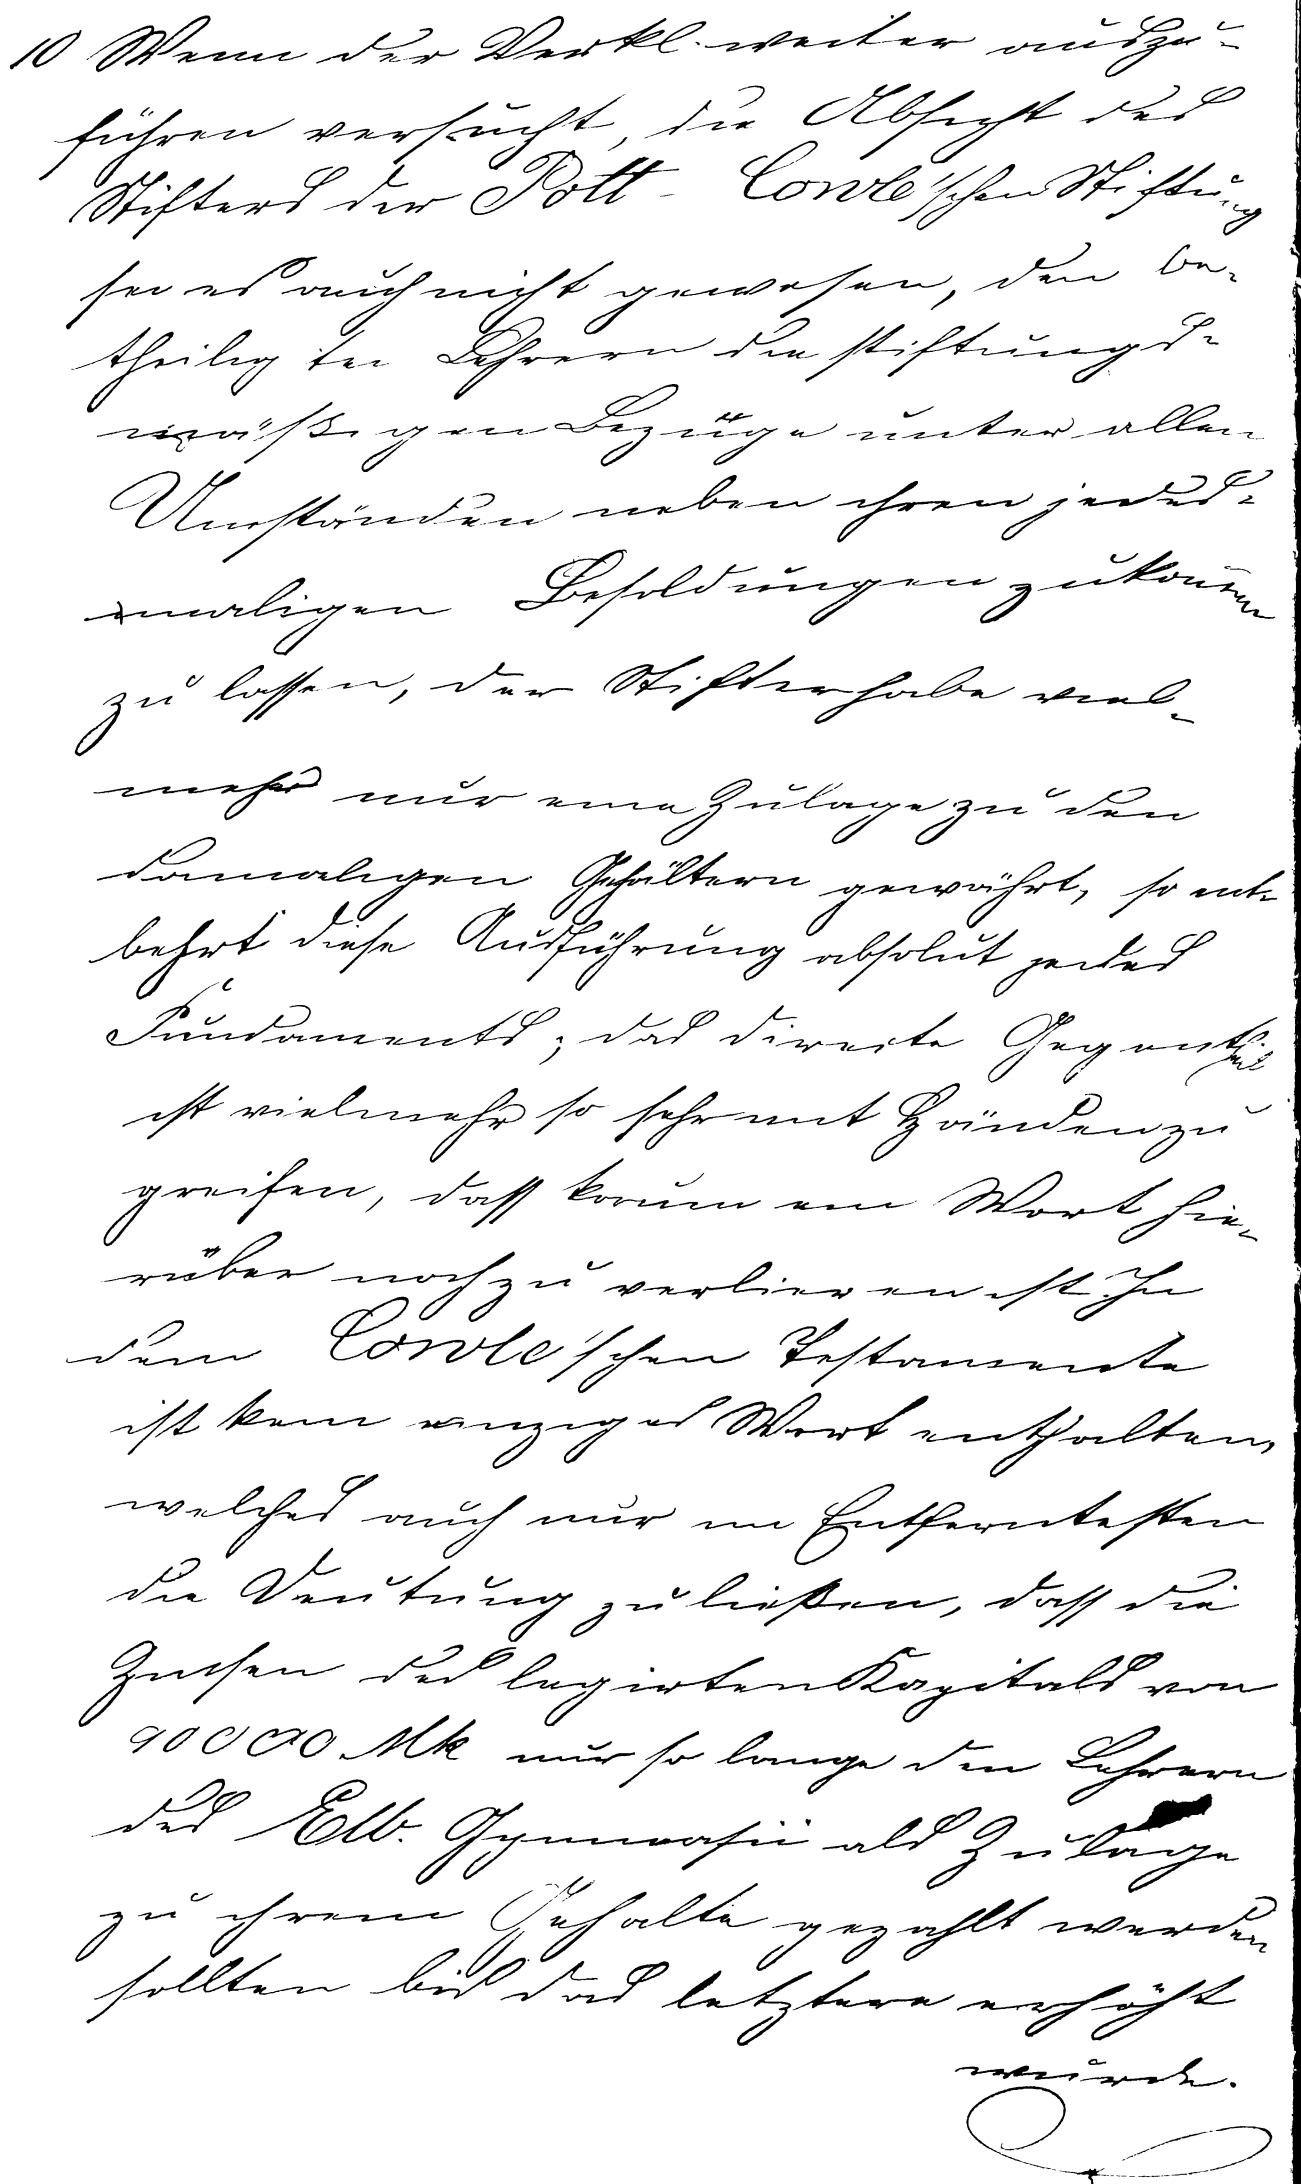 10 Wenn der Verkl. weiter auszu-
führen versucht, die Absicht des
Stifters der Pott-Cowle'schen Stiftung
sei es auch nicht gewesen, den be-
theiligten Lehrern die stiftungs-
mäßigen Bezüge unter allen
Umständen neben ihren jedes-
maligen Besoldungen zukommen
zu lassen, der Stifter habe viel-
mehr nur eine Zulage zu den
damaligen Gehältern gewährt, so ent-
behrt diese Ausführung absolut jedes
Fundaments; das directe Gegentheil
ist vielmehr so sehr mit Händen zu
greifen, dass kaum ein Wort hie-
rüber noch zu verlieren ist. In
dem Cowle'schen Testamente
ist kein einziges Wort enthalten,
welches auch nur im Entferntesten
die Deutung zuließen, dass die
Zinsen des legirten Kapitals von
90000 Mk nur so lange den Lehrern
des Elb. Gymnasii als Zulage
zu ihrem Gehalte gezahlt werden
sollten bis das letztere erhöht
wurde.